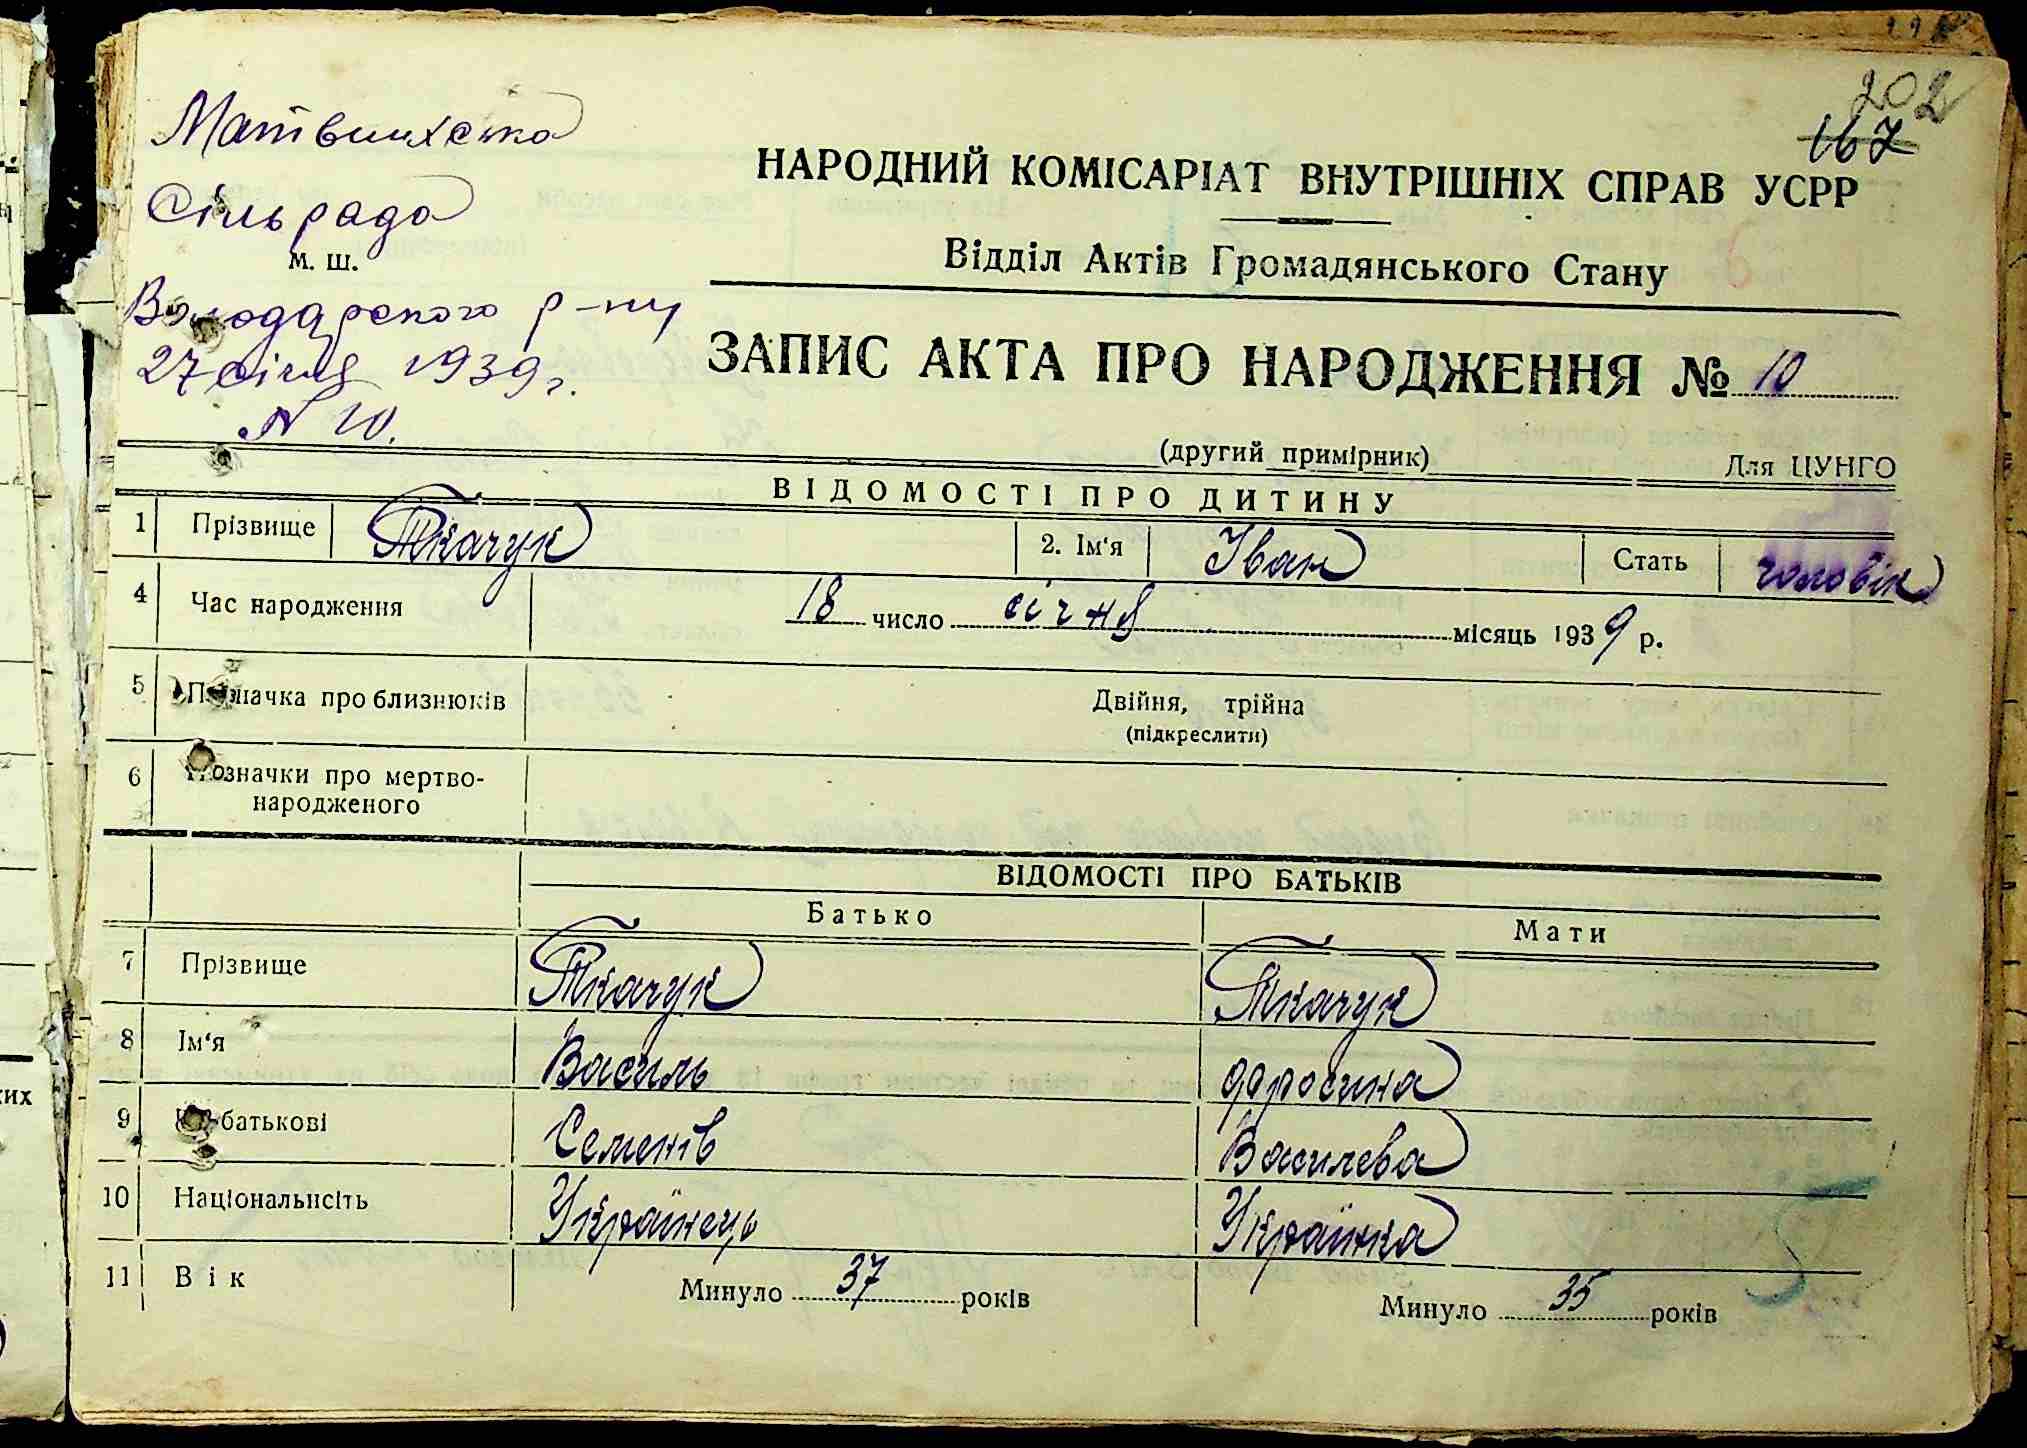 202
167
Матвиихська
Сільрада
м. ш.
Володарского р-ну
27 січня 1939 г.
N 10.
НАРОДНИЙ КОМІСАРІАТ ВНУТРІШНІХ СПРАВ УСРР
Відділ Актів Громадянського Стану
ЗАПИС АКТА ПРО НАРОДЖЕННЯ № 10
(другий примірник) Для ЦУНГО
ВІДОМОСТІ ПРО ДИТИНУ
1 Прізвище Ткачук 2. Ім'я Іван Стать чоловік
4 Час народження 18 число січня місяць 1939 р.
5 Позначка про близнюків Двійня, трійна
(підкреслити)
6 Позначки про мертво-
народженого
ВІДОМОСТІ ПРО БАТЬКІВ
Батько Мати
7 Прізвище Ткачук Ткачук
8 Ім'я Василь Фросина
9 По-батькові Семенів Василева
10 Національність Українець Українка
11 Вік Минуло 37 років Минуло 35 років